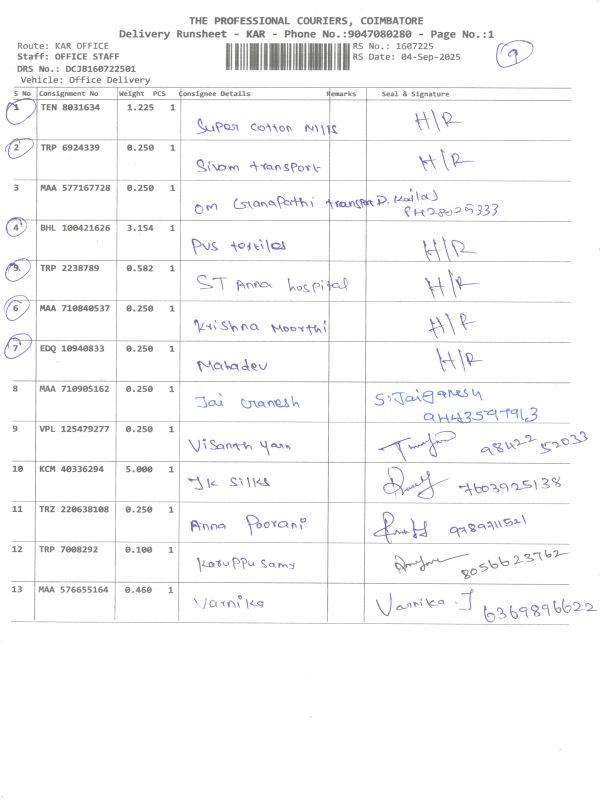 THE PROFESSIONAL COURIERS, COIMBATORE
Delivery Runsheet - KAR - Phone No.:9047080280 - Page No.:1
Route: KAR OFFICE RS No.: 1607225
Staff: OFFICE STAFF RS Date: 04-Sep-2025
DRS No.: DCJB160722501
Vehicle: Office Delivery
S No Consignment No Weight PCS Consignee Details Remarks Seal & Signature
1 TEN 8031634 1.225 1 Super Cotton Mills H/R
2 TRP 6924339 0.250 1 Sivam transport H/R
3 MAA 577167728 0.250 1 Om Ganapathi transport P. Kailas
PH28025333
4 BHL 100421626 3.154 1 PVS textiles H/R
5 TRP 2238789 0.582 1 ST Anna hospital H/R
6 MAA 710840537 0.250 1 Krishna Moorthi H/R
7 EDQ 10940833 0.250 1 Mahadev H/R
8 MAA 710905162 0.250 1 Jai Ganesh S. Jaiganesh
9 VPL 125479277 0.250 1 Visanth yarn 98422 52033
10 KCM 40336294 5.000 1 JK Silks 7603925138
11 TRZ 220638108 0.250 1 Anna Poorani 9789711521
12 TRP 7008292 0.100 1 Karuppu Samy 8056623762
13 MAA 576655164 0.460 1 Varnika Varnika. J 6369896622